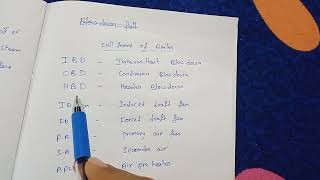 Blowdown Full
Full form of Boiler
IBD - Intermittent Blowdown
CBD - Continuous Blowdown
HBD - Header Blowdown
ID - Induced draft fan
FD - Forced draft fan
P.A - primary air fan
S.A - air
APH - Air pre heater
or
Steam